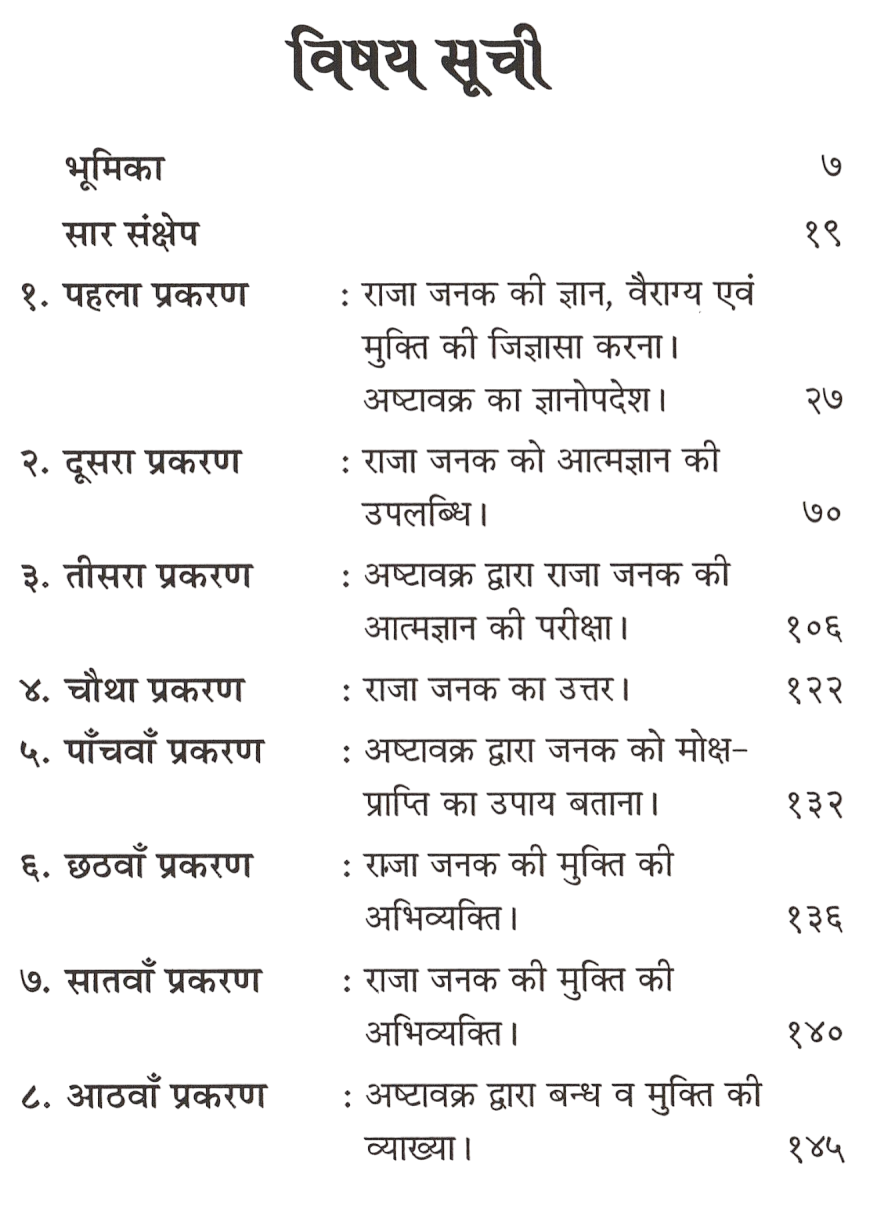 विषय सूची
भूमिका ७
सार संक्षेप १९
१. पहला प्रकरण : राजा जनक की ज्ञान, वैराग्य एवं
मुक्ति की जिज्ञासा करना।
अष्टावक्र का ज्ञानोपदेश। २७
२. दूसरा प्रकरण : राजा जनक को आत्मज्ञान की
उपलब्धि। ७०
३. तीसरा प्रकरण : अष्टावक्र द्वारा राजा जनक की
आत्मज्ञान की परीक्षा। १०६
४. चौथा प्रकरण : राजा जनक का उत्तर। १२२
५. पाँचवाँ प्रकरण : अष्टावक्र द्वारा जनक को मोक्ष-
प्राप्ति का उपाय बताना। १३२
६. छठवाँ प्रकरण : राजा जनक की मुक्ति की
अभिव्यक्ति। १३६
७. सातवाँ प्रकरण : राजा जनक की मुक्ति की
अभिव्यक्ति। १४०
८. आठवाँ प्रकरण : अष्टावक्र द्वारा बन्ध व मुक्ति की
व्याख्या। १४५